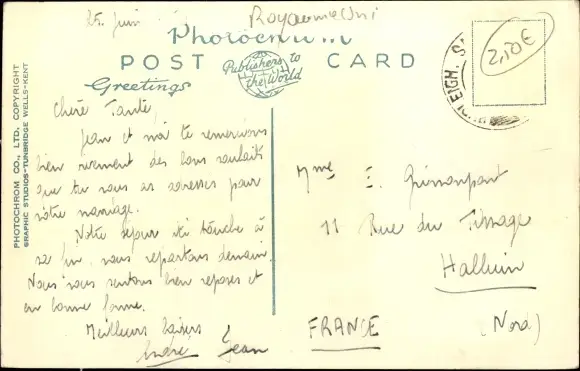 25. juin
Royaume Uni
Photochrom
POST CARD
Publishers to
the World
Greetings
2,50€
LEIGH
PHOTOCHROM CO., LTD. COPYRIGHT
GRAPHIC STUDIOS-TUNBRIDGE WELLS-KENT
Chère Tante,
Jean et moi te remercions
bien vivement des bons souhaits
que tu nous as adressés pour
notre mariage.
Notre séjour ici touche à
sa fin, nous repartons demain.
Nous nous sentons bien reposés et
en bonne forme.
Meilleurs baisers
André Jean
Mme E.
11 Rue du Tissage
Halluin
(Nord)
FRANCE